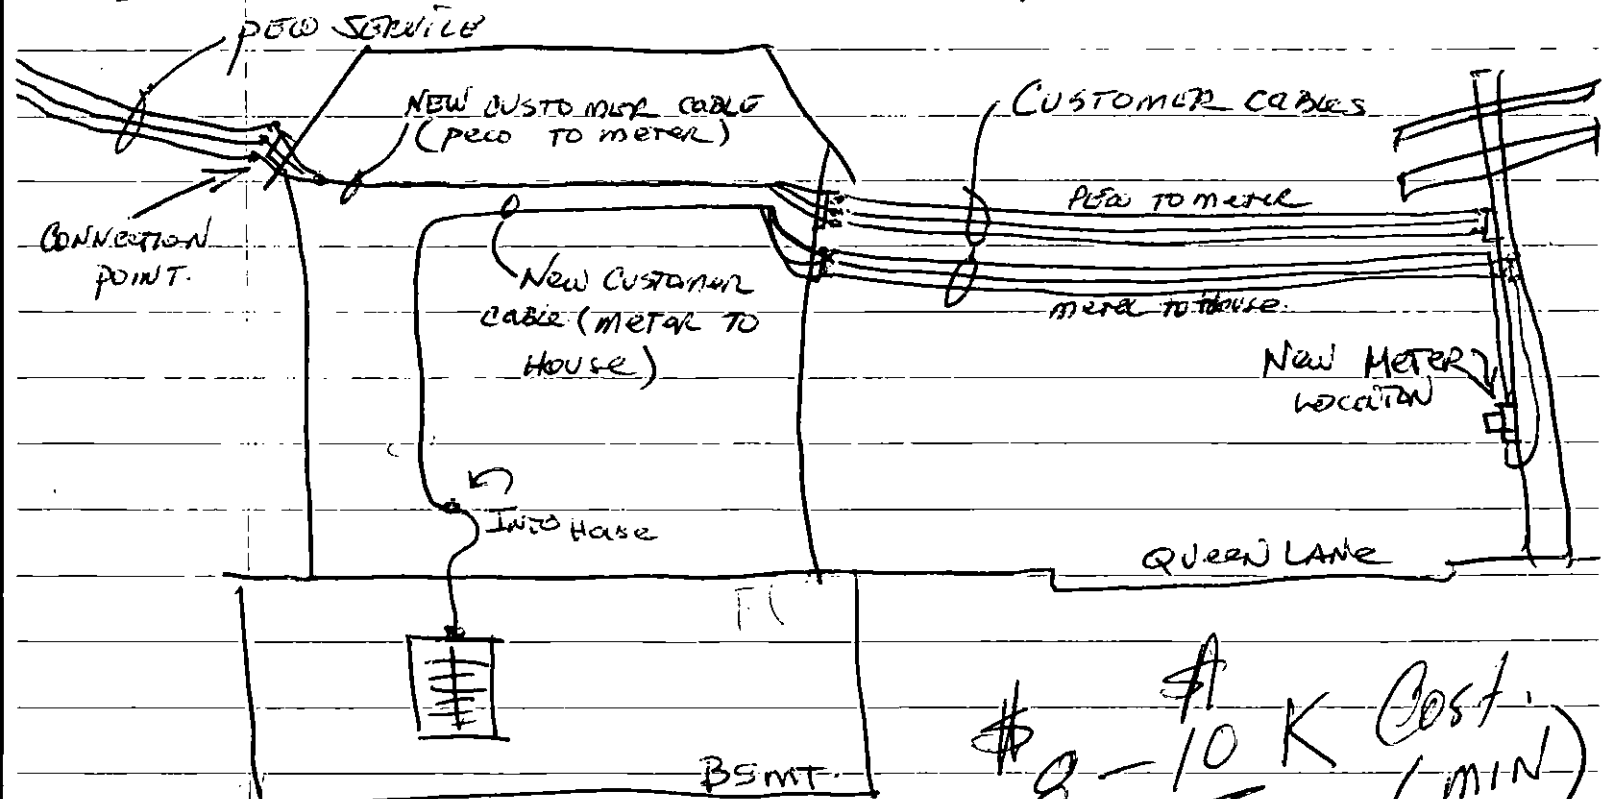 PECO SERVICE
NEW CUSTOMER CABLE
(PECO TO METER)
CUSTOMER CABLES
PECO TO METER
CONNECTION
POINT.
NEW CUSTOMER
CABLE (METER TO
HOUSE)
METER TO HOUSE.
NEW METER
LOCATION
INTO HOUSE
QUEEN LANE
BSMT.
$
$ 8-10 K Cost.
(MIN)